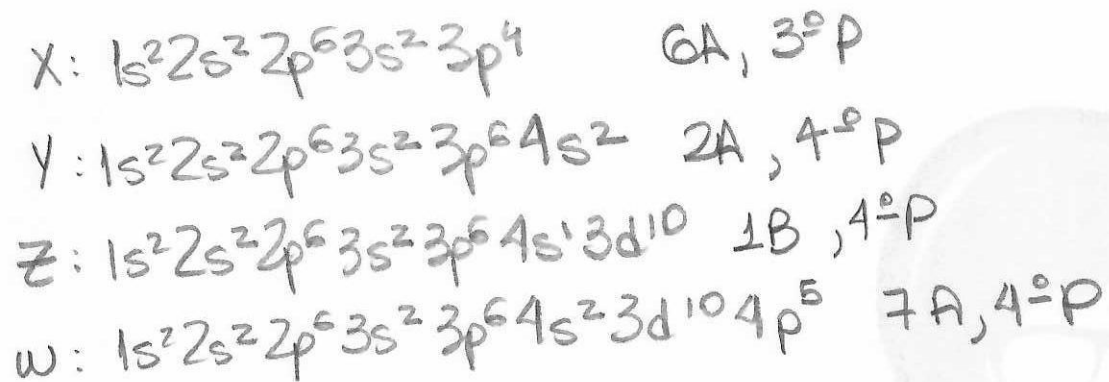 X: 1s²2s²2p⁶3s²3p⁴ 6A, 3º P
Y: 1s²2s²2p⁶3s²3p⁶4s² 2A, 4º P
Z: 1s²2s²2p⁶3s²3p⁶4s¹3d¹⁰ 1B, 4º P
W: 1s²2s²2p⁶3s²3p⁶4s²3d¹⁰4p⁵ 7A, 4º P